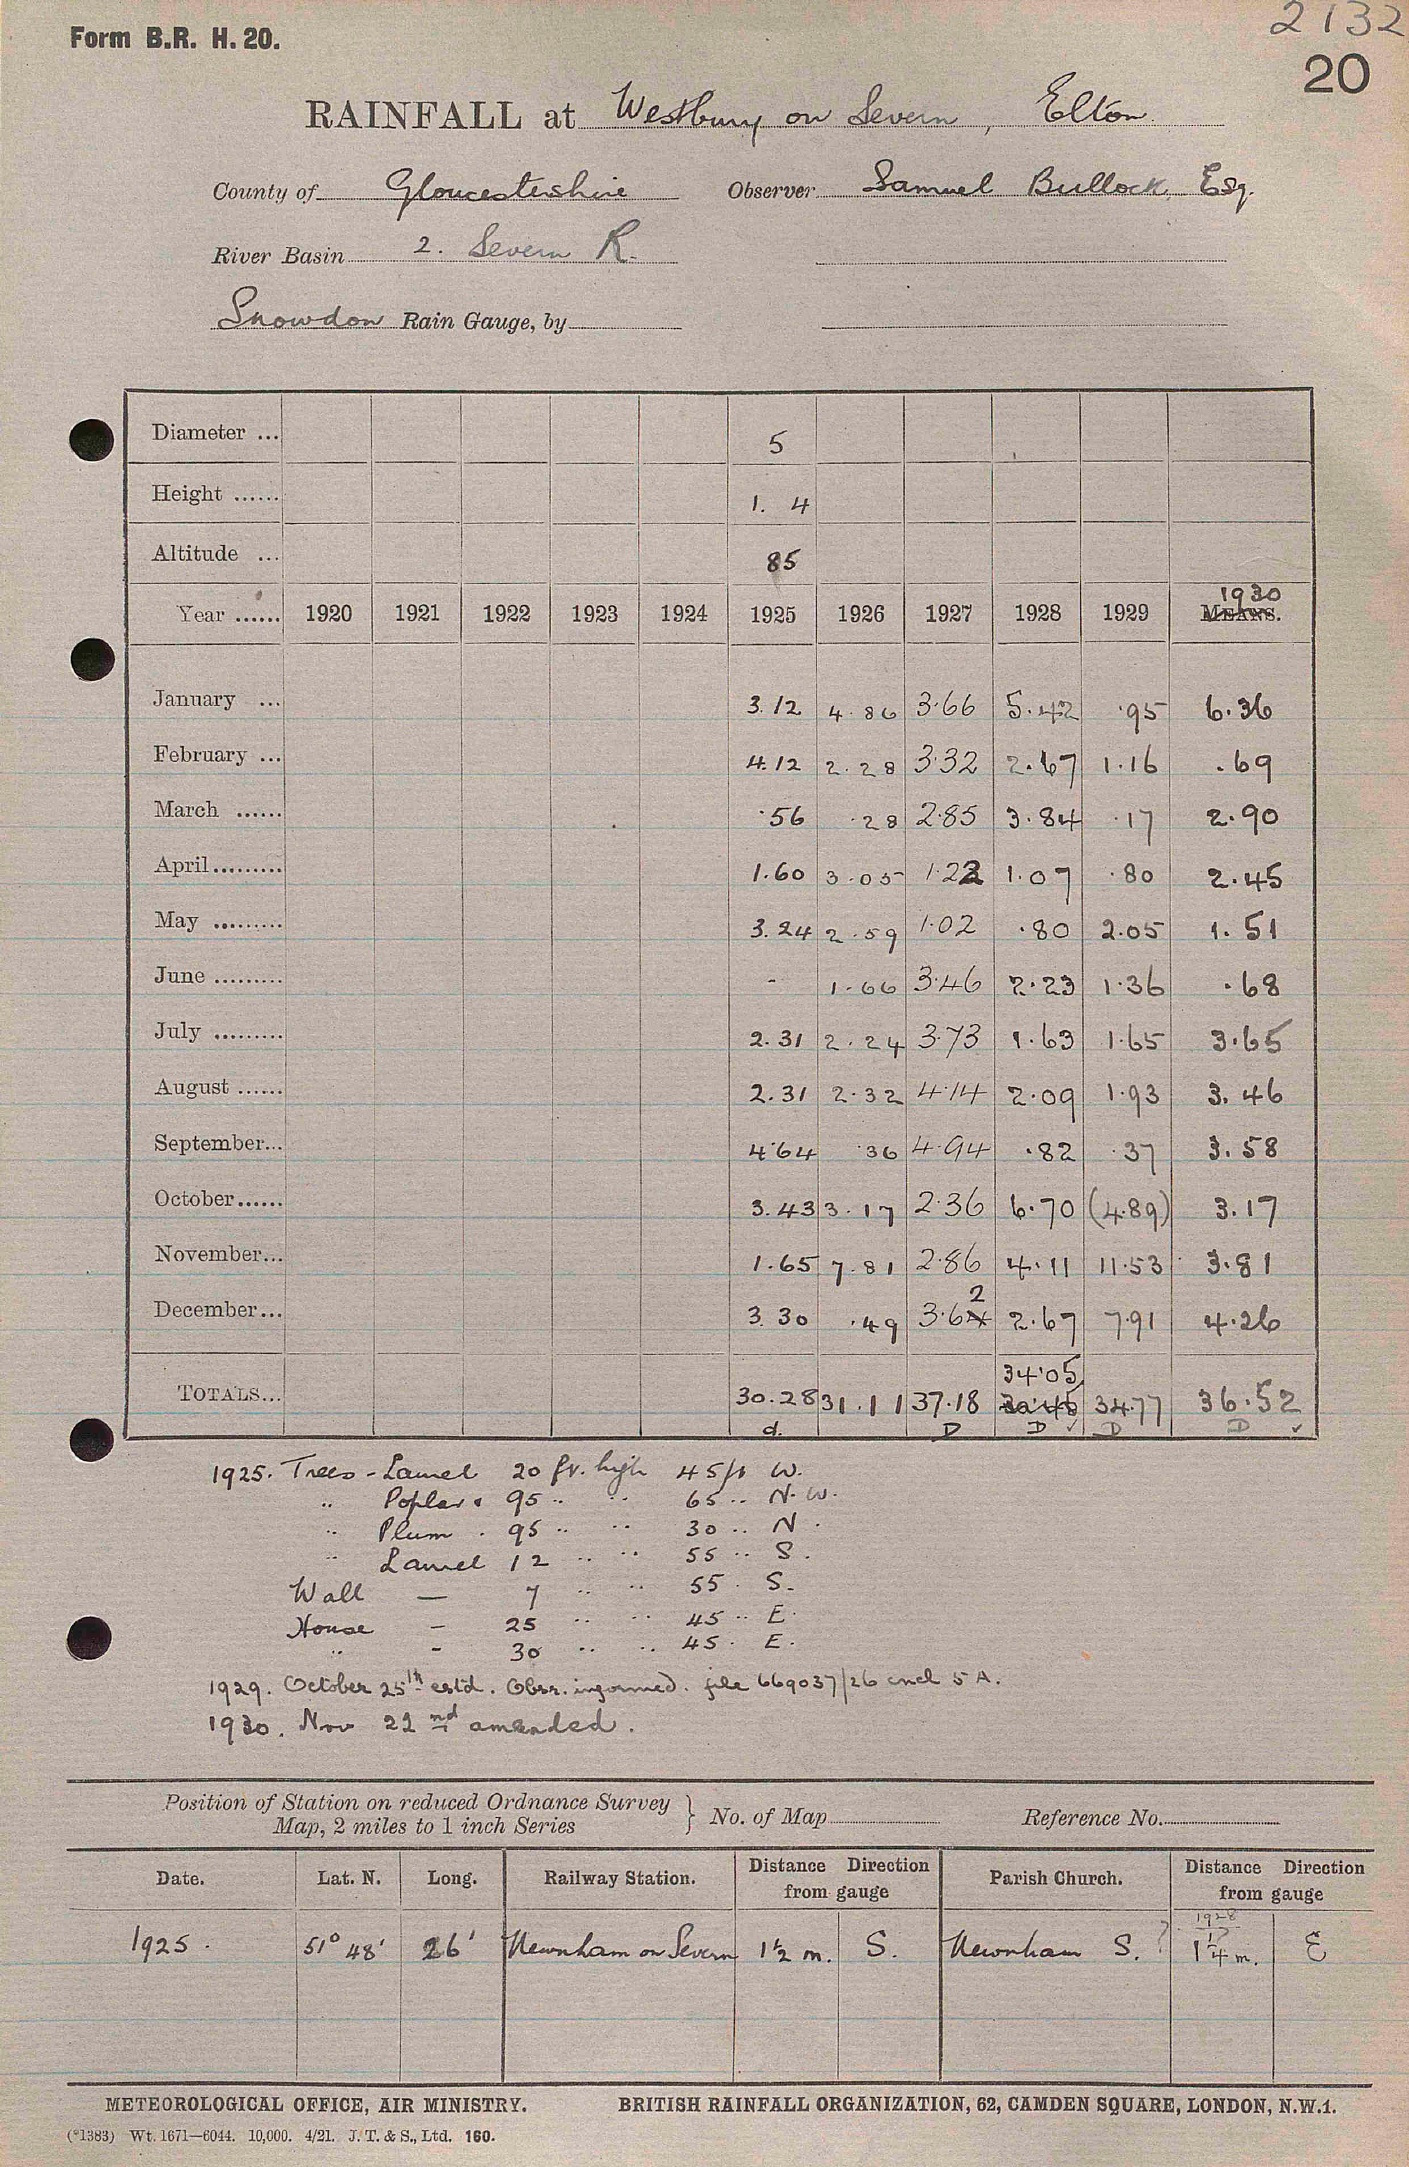 Form B.R. H. 20.
2132
20
RAINFALL at Westbury on Severn, Elton
County of Gloucestershire Observer Samuel Bullock, Esq.
River Basin 2. Severn R.
Snowdon Rain Gauge, by
Diameter ... 5
Height ...... 1. 4
Altitude ... 85
Year ...... 1920 1921 1922 1923 1924 1925 1926 1927 1928 1929 MEANS. 1930
January ... 3.12 4.86 3.66 5.42 .95 6.36
February ... 4.12 2.28 3.32 2.67 1.16 .69
March ...... .56 .28 2.85 3.84 .17 2.90
April ......... 1.60 3.05 1.22 1.07 .80 2.45
May ......... 3.24 2.59 1.02 .80 2.05 1.51
June ......... - 1.66 3.46 2.23 1.36 .68
July ......... 2.31 2.24 3.73 1.63 1.65 3.65
August ...... 2.31 2.32 4.14 2.09 1.93 3.46
September... 4.64 .36 4.94 .82 .37 3.58
October...... 3.43 3.17 2.36 6.70 (4.89) 3.17
November... 1.65 7.81 2.86 4.11 11.53 3.81
December... 3.30 .49 3.64 2 2.67 7.91 4.26
34.05
TOTALS... 30.28 31.11 37.18 34.77 36.52
d. D D ✓ D D ✓
1925. Trees - Laurel 20 ft. high 45 ft W.
" Poplar . 95 " " 65 " N.W.
" Plum . 95 " " 30 " N.
" Laurel 12 " " 55 " S.
Wall — 7 " " 55 " S.
House - 25 " " 45 " E.
" - 30 " " 45 " E.
1929. October 25th estd. Obsr. informed. file 669037/26 encl 5 A.
1930. Nov 22nd amended.
Position of Station on reduced Ordnance Survey
Map, 2 miles to 1 inch Series } No. of Map Reference No.
Date. Lat. N. Long. Railway Station. Distance Direction from gauge Parish Church. Distance Direction from gauge
1928
1925. 51° 48' 26' Newnham on Severn 1½ m. S. Newnham S. ? 1¼ m. E
METEOROLOGICAL OFFICE, AIR MINISTRY. BRITISH RAINFALL ORGANIZATION, 62, CAMDEN SQUARE, LONDON, N.W.1.
(*1383) Wt. 1671—6044. 10,000. 4/21. J. T. & S., Ltd. 160.